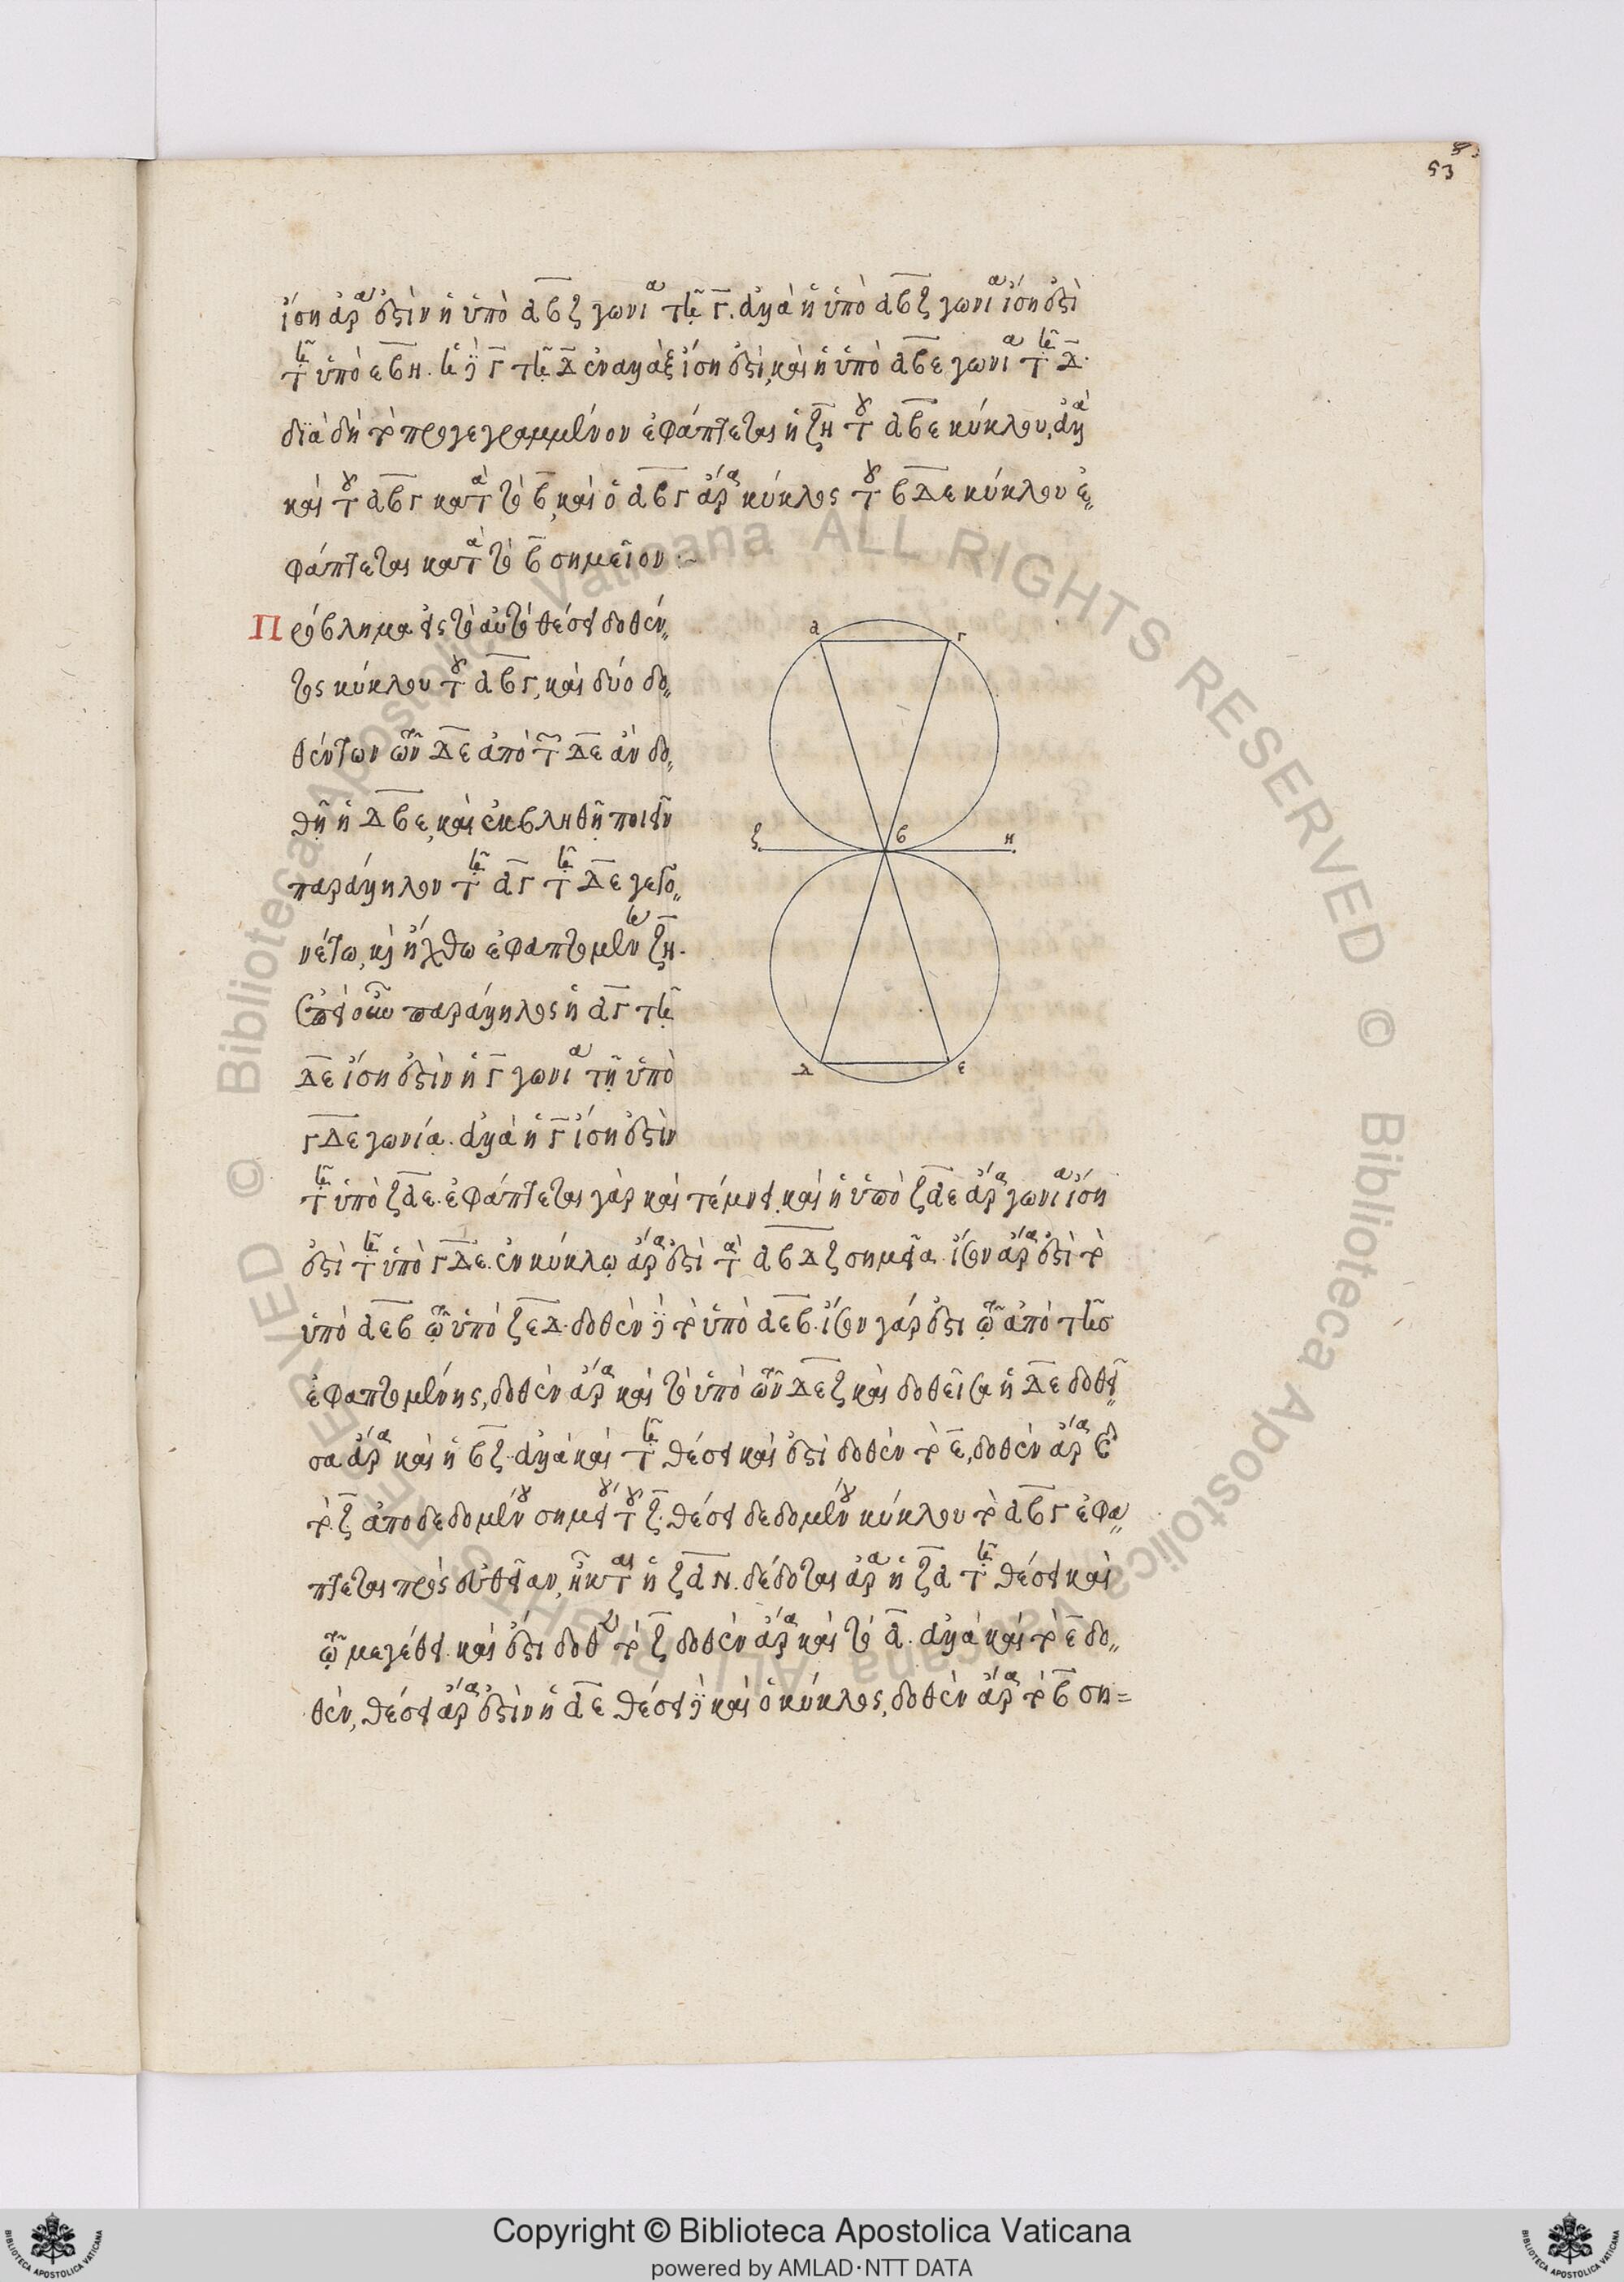 53
ἴση ἄρα ἐστὶν ἡ ὑπὸ αβζ γωνία τῆ γ. ἀλλὰ ἡ ὑπὸ αβζ γωνία ἴση ἐστὶ
τῆ ὑπὸ εβη. ἡ δὲ γ τῆ δ ἐναλλὰξ ἴση ἐστὶ, καὶ ἡ ὑπὸ αβε γωνία τῆ δ.
διὰ δὴ τὸ προγεγραμμένον ἐφάπτεται ἡ ζη τοῦ αβε κύκλου, ἀλλὰ
καὶ τοῦ αβγ κατὰ τὸ β, καὶ ὁ αβγ ἄρα κύκλος τοῦ βδε κύκλου ἐ„
φάπτεται κατὰ τὸ β σημεῖον :~
Πρόβλημα εἰς τὸ αὐτό θέσει δοθέν„
τος κύκλου τοῦ αβγ, καὶ δύο δο„
θέντων τῶν δε ἀπὸ τῶν δε ἀν δο„
θῆ ἡ δβε, καὶ ἐκβληθῆ ποιεῖν
παράλληλον τῆ αγ τῆ δε γεγο„
νέτω, καὶ ἤχθω ἐφαπτομένη ζη.
ἐπεὶ οὖν παράλληλος ἡ αγ τῆ
δε ἴση ἐστὶν ἡ γ γωνία τῆ ὑπὸ
γδε γωνία. ἀλλὰ ἡ γ ἴση ἐστὶν
τῆ ὑπὸ ζαε. ἐφάπτεται γὰρ καὶ τέμνει. καὶ ἡ ὑπὸ ζαε ἄρα γωνία ἴση
ἐστὶ τῆ ὑπὸ γδε. ἐν κύκλω ἄρα ἐστὶ τὰ αβδζ σημεῖα. ἴσον ἄρα ἐστὶ τὸ
ὑπὸ αεβ τῶ ὑπὸ ζεδ. δοθὲν δὲ τὸ ὑπὸ αεβ. ἴσον γάρ ἐστι τῶ ἀπὸ τῆς
ἐφαπτομένης, δοθὲν ἄρα καὶ τὸ ὑπὸ τῶν δεζ καὶ δοθεῖσα ἡ δε δοθεῖ„
σα ἄρα καὶ ἡ βζ. ἀλλὰ καὶ τῆ θέσει καὶ ἐστὶ δοθὲν τὸ ε, δοθὲν ἄρα ἐστὶ
τὸ ζ ἀπὸ δεδομένου σημείου τοῦ ζ. θέσει δεδομένου κύκλου τὸ αβγ ἐφα„
πτεται πρὸς εὐθεῖαν, ἡ ζαν. δέδοται ἄρα ἡ ζα τῆ θέσει καὶ
τῶ μεγέθει. καὶ ἐστι δοθὲν τὸ ζ δοθὲν ἄρα καὶ τὸ α. ἀλλὰ καὶ τὸ ε δο„
θὲν, θέσει ἄρα ἐστὶν ἡ αε θέσει δὲ καὶ ὁ κύκλος, δοθὲν ἄρα τὸ β ση=
α
γ
ζ
β
η
δ
ε
Copyright © Biblioteca Apostolica Vaticana
powered by AMLAD·NTT DATA
© Biblioteca Apostolica Vaticana ALL RIGHTS RESERVED © Biblioteca Apostolica Vaticana ALL RIGHTS RESERVED
BIBLIOTECA APOSTOLICA VATICANA
BIBLIOTECA APOSTOLICA VATICANA